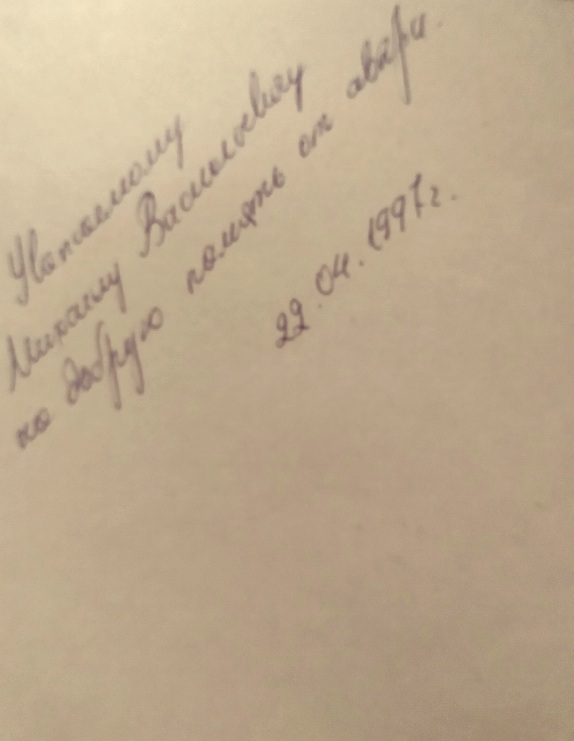 Уважаемому
Михаилу Васильевичу
на добрую память от
22.04.1997г.